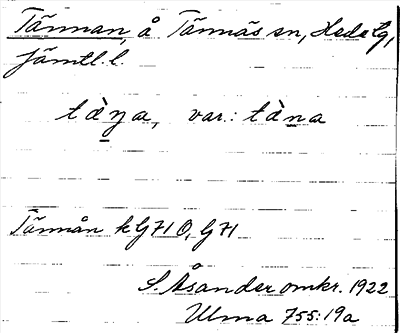 Tännan, å Tännäs sn, Hede tg,
Jämtl. l.
tàŋa, var.: tàna
Tännån kG71Ö, G71
S. Åsander omkr. 1922
Ulma 755:19a